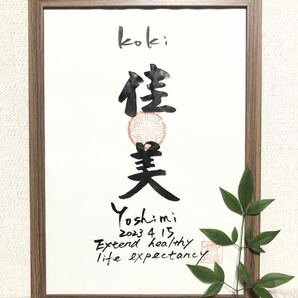 koki
佳
美
Yoshimi
2023 4 15
Extend healthy
life expectancy